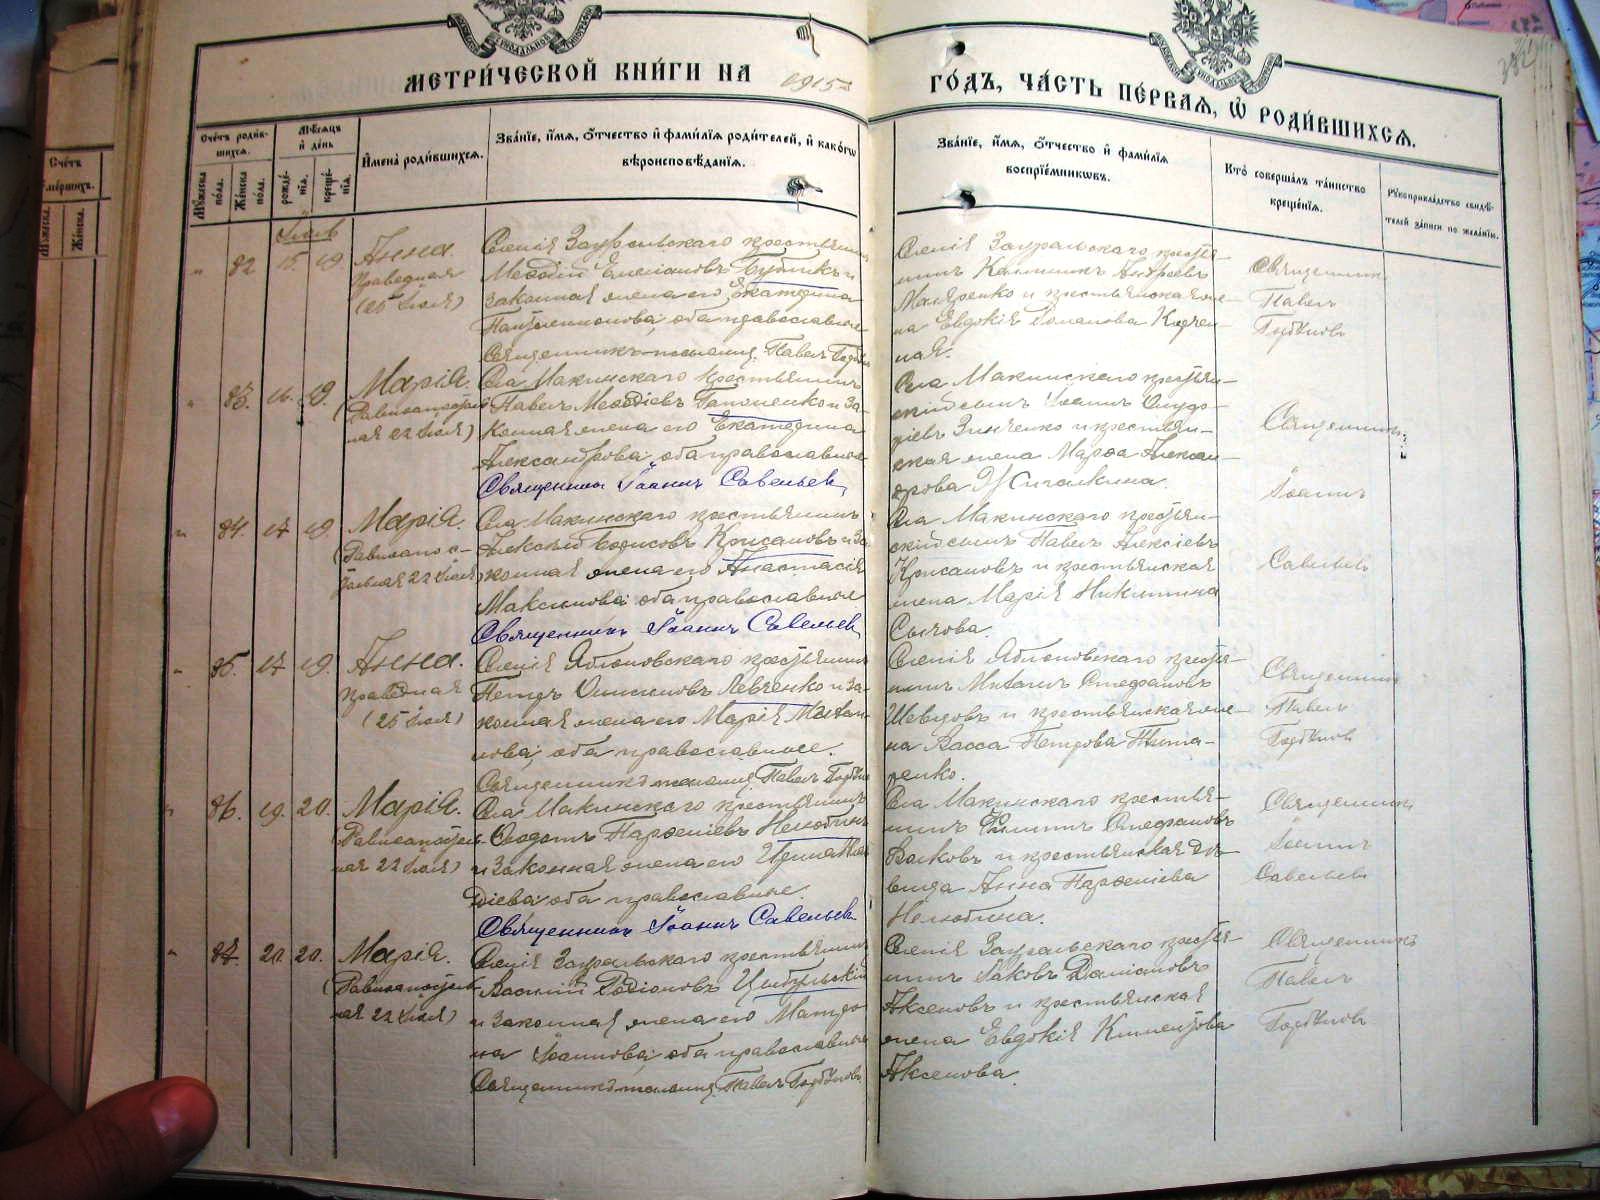 МЕТРИ́ЧЕСКОЙ КНИ́ГИ НА 1915 ГО́ДЪ, ЧА́СТЬ ПЕ́РВАЯ, Ѡ РОДИ́ВШИХСЯ.
Счетъ
умершихъ.
Женска.
Счетъ родив-
шихся.
Мужеска
пола.
Женска
пола.
Мѣсяцъ
и день
рожде-
нія.
креще-
нія.
Имена родившихся.
Званіе, имя, отчество и фамилія родителей, и какогѡ
вѣроисповѣданія.
Званіе, имя, отчество и фамилія
воспріемниковъ.
Кто совершалъ таинство
крещенія.
Рукоприкладство свидѣ-
телей записи по желанію.
Іюль
82 15. 19.
Анна.
Праведная
(25 Іюля)
Селенія Зауральскаго крестьянинъ
Меѳодій Емеліановъ Будникъ и
законная жена его Екатерина
оба православные
Священникъ Павелъ
Селенія Зауральскаго крестья-
нинъ Андреевъ
и крестьянская же-
на Евдокія Романова
ная.
Священникъ
Павелъ
83. 16. 19.
Марія.
(Равноапостоль-
ная 22 Іюля)
Села Макинскаго крестьянинъ
Павелъ Меѳодіевъ Гапоненко и за-
конная жена его Екатерина
Александрова, оба православные
Священникъ Іоаннъ Савельевъ
Села Макинскаго крестьян-
скій сынъ Іоаннъ
Зинченко и крестьян-
ская жена Марѳа Алексан-
дрова Жигалкина.
Священникъ
Іоаннъ
Савельевъ
84. 17 19.
Марія.
(Равноапо-
стольная 22 Іюля)
Села Макинскаго крестьянинъ
Алексій Борисовъ Крисановъ и за-
конная жена его Анастасія
Максимова оба православные
Священникъ Іоаннъ Савельевъ
Села Макинскаго крестьян-
скій сынъ Павелъ Алексіевъ
Крисановъ и крестьянская
жена Марія Никитина
Сычова.
85. 17 19.
Анна.
Праведная
(25 Іюля)
Селенія Яблоновскаго крестьянинъ
Петръ Левченко и за-
конная жена его Марія Михаи-
лова, оба православные.
Священникъ Павелъ
Селенія Яблоновскаго крестья-
нинъ Михаилъ Стефановъ
Шевцовъ и крестьянская же-
на Васса Петрова Тита-
ренко.
Священникъ
Павелъ
86. 19. 20.
Марія.
(Равноапостоль-
ная 22 Іюля)
Села Макинскаго крестьянинъ
Ѳеодотъ Парѳеніевъ Нелюбинъ
и законная жена его Ирина
діева, оба православные.
Священникъ Іоаннъ Савельевъ
Села Макинскаго крестья-
нинъ Филиппъ Стефановъ
Волковъ и крестьянская дѣ-
вица Анна Парѳеніева
Нелюбина.
Священникъ
Іоаннъ
Савельевъ
87. 20. 20.
Марія.
(Равноапостоль-
ная 22 Іюля)
Селенія Зауральскаго крестьянинъ
Василій Родіоновъ Цыбульскій
и законная жена его Матро-
на Іоаннова, оба православные
Священникъ Павелъ
Селенія Зауральскаго крестья-
нинъ Іаковъ Даміановъ
Аксеновъ и крестьянская
жена Евдокія Климентова
Аксенова.
Священникъ
Павелъ